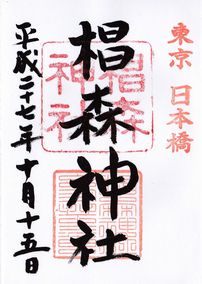 東京 日本橋
椙森神社
椙森
神社
平成二十七年十月十五日